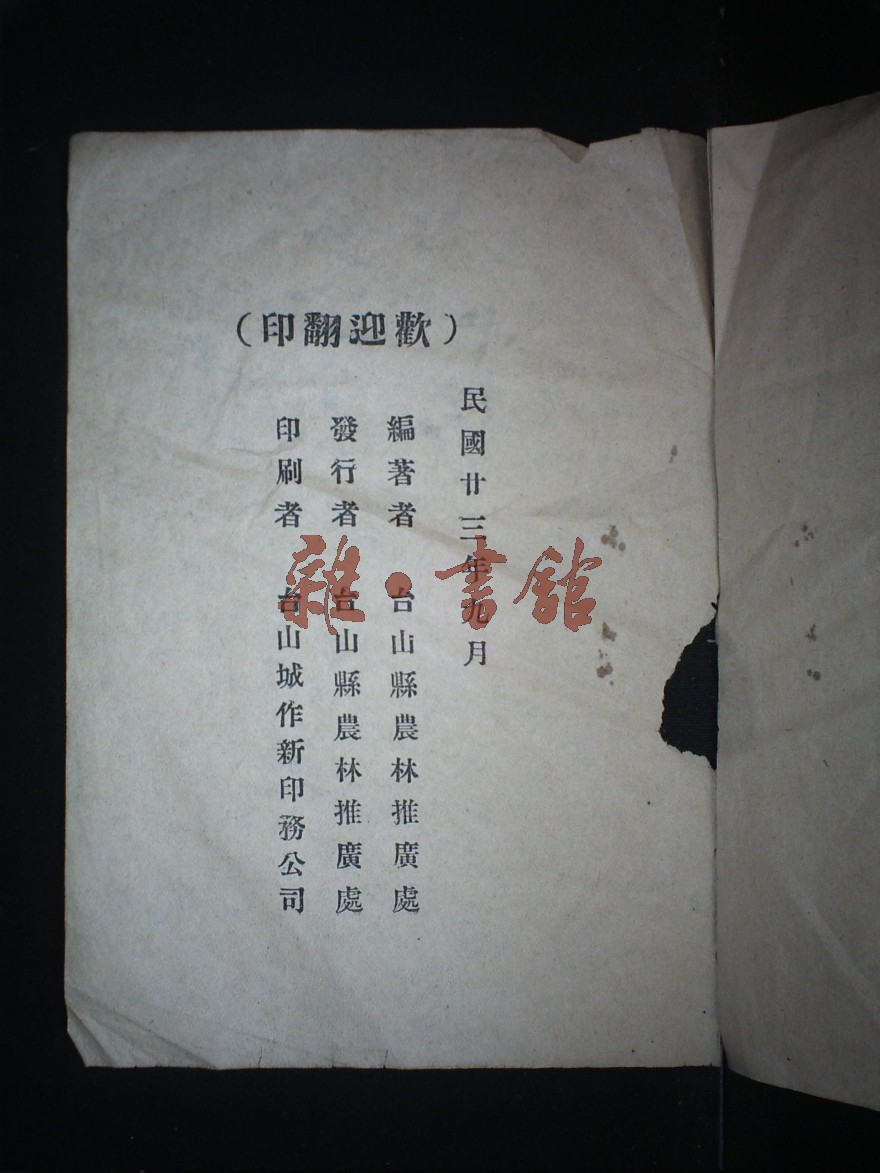 （歡迎翻印）
民國廿三年九月
編著者　台山縣農林推廣處
發行者　台山縣農林推廣處
印刷者　台山城作新印務公司
雜·書館